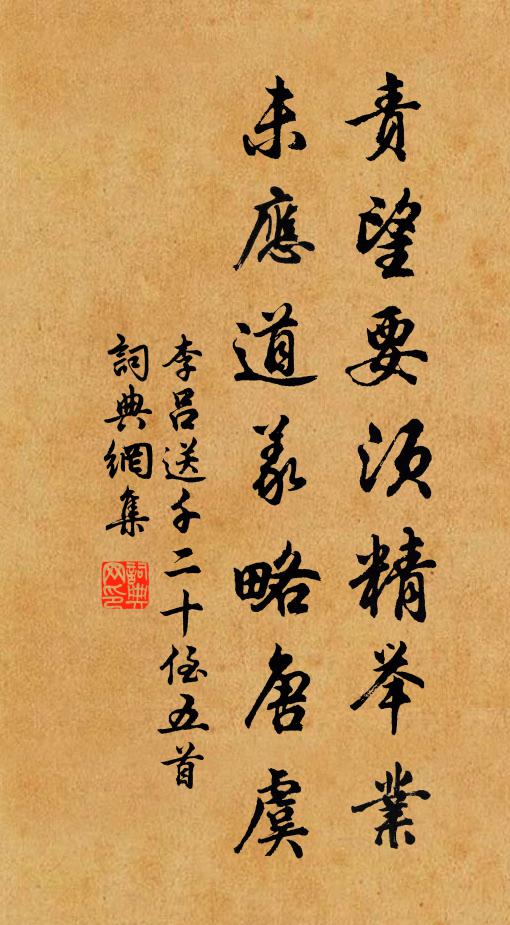 責望要須精举業
未應道義略唐虞
李呂送千二十侄五首
詞典網集
詞典网印